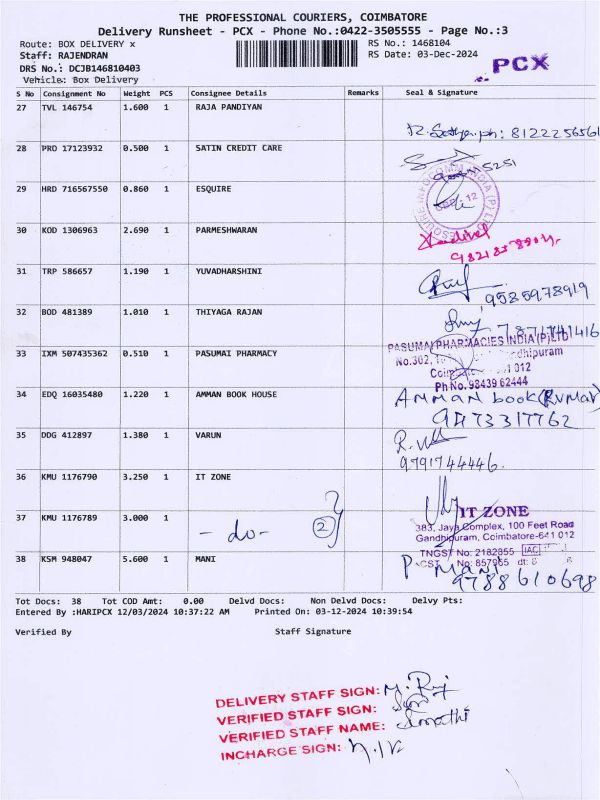 THE PROFESSIONAL COURIERS, COIMBATORE
Delivery Runsheet - PCX - Phone No.:0422-3505555 - Page No.:3
Route: BOX DELIVERY x
Staff: RAJENDRAN
DRS No.: DCJB146810403
Vehicle: Box Delivery
RS No.: 1468104
RS Date: 03-Dec-2024
PCX
S No Consignment No Weight PCS Consignee Details Remarks Seal & Signature
27 TVL 146754 1.600 1 RAJA PANDIYAN
ph: 8122256561
28 PRO 17123932 0.500 1 SATIN CREDIT CARE
5251
29 HRD 716567550 0.860 1 ESQUIRE
30 KOD 1306963 2.690 1 PARMESHWARAN
31 TRP 586657 1.190 1 YUVADHARSHINI
9585978919
32 BOD 481389 1.010 1 THIYAGA RAJAN
33 IXM 507435362 0.510 1 PASUMAI PHARMACY
PASUMAI PHARMACIES INDIA (P) LTD
No.302,
Ph No. 98439 62444
34 EDQ 16035480 1.220 1 AMMAN BOOK HOUSE
AMMAN book (KUMAR)
9473317762
35 DDG 412897 1.380 1 VARUN
9791744446
36 KMU 1176790 3.250 1 IT ZONE
37 KMU 1176789 3.000 1
- do - 2
IT ZONE
383, Jaya Complex, 100 Feet Road
Gandhipuram, Coimbatore-641 012
TNGST No: 2182855 IAC
CST No: 857965 dt: 8
38 KSM 948047 5.600 1 MANI
P. MANI
9788610698
Tot Docs: 38 Tot COD Amt: 0.00 Delvd Docs: Non Delvd Docs: Delvy Pts:
Entered By :HARIPCX 12/03/2024 10:37:22 AM Printed On: 03-12-2024 10:39:54
Verified By Staff Signature
DELIVERY STAFF SIGN:
VERIFIED STAFF SIGN:
VERIFIED STAFF NAME:
INCHARGE SIGN: